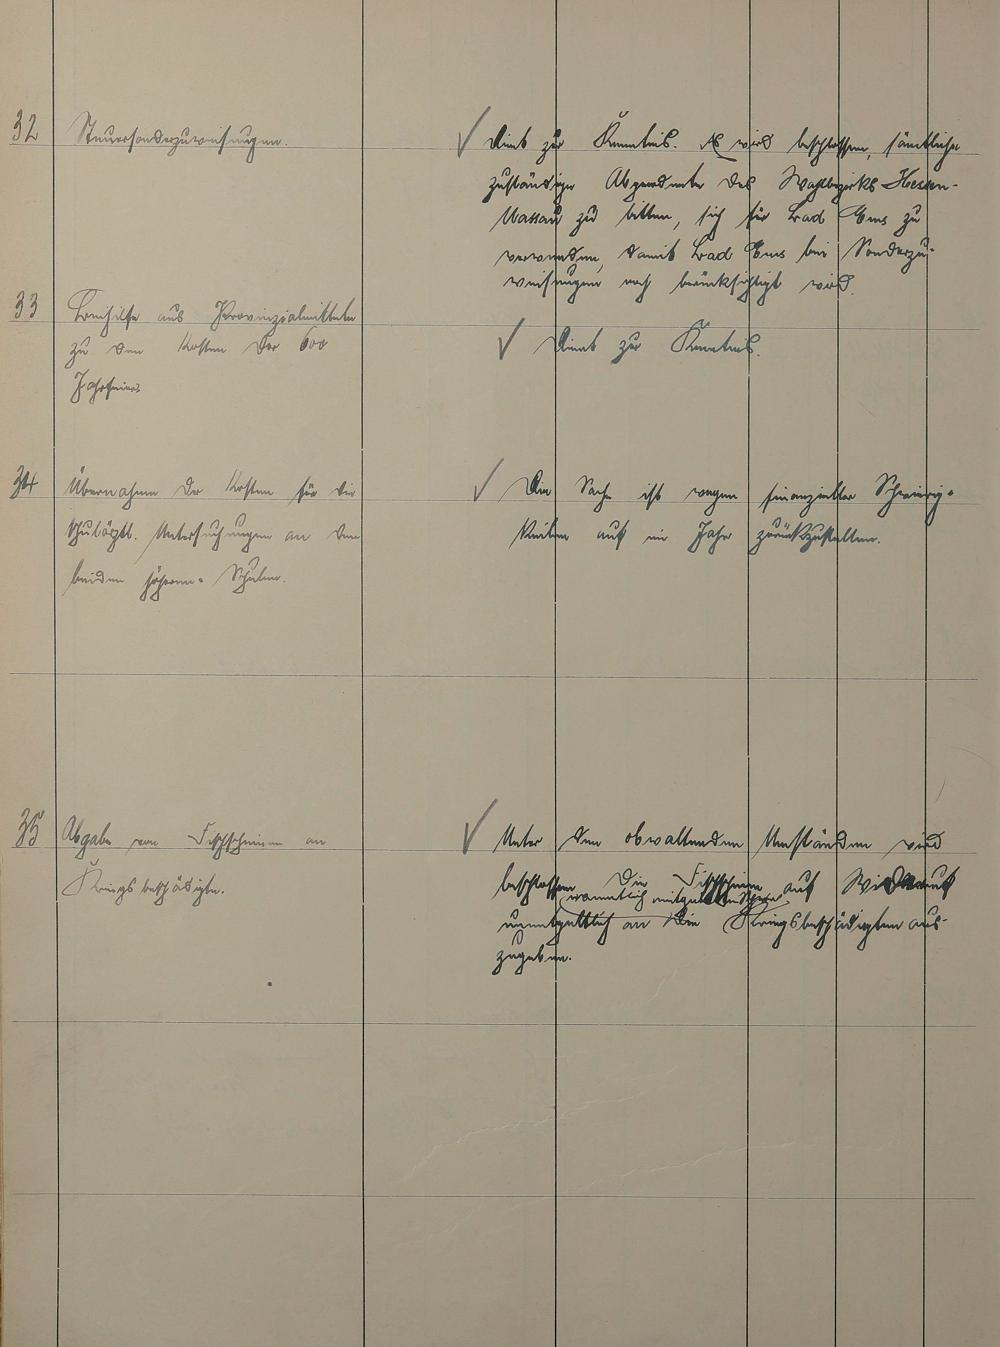 32
Steuersonderzuweisungen.
Dient zur Kenntnis. Es wird beschlossen, sämtliche
zuständige Abgeordnete des Wahlbezirks Hessen-
Nassau zu bitten, sich für Bad Ems zu
verwenden, damit Bad Ems bei Sonderzu-
weisungen noch berücksichtigt wird.
33
Beihilfe aus Provinzialmitteln
zu den Kosten der 600
Jahrfeier
Dient zur Kenntnis.
34
Übernahme der Kosten für die
schulärztl. Untersuchungen an den
beiden höheren Schulen.
Die Sache ist wegen finanzieller Schwierig-
keiten auf ein Jahr zurückzustellen.
35
Abgabe von Fischscheinen an
Kriegsbeschädigte.
Unter den obwaltenden Umständen wird
beschlossen die Fischscheine auf Widerruf
unentgeltlich an die Kriegsbeschädigten aus-
zugeben.